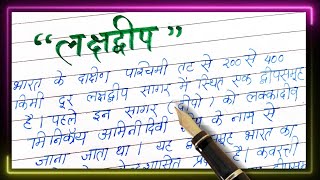 “लक्षद्वीप”
भारत के दक्षिण पश्चिमी तट से २०० से ४००
किमी दूर लक्षद्वीप सागर में स्थित एक द्वीपसमूह
है। पहले इन सागर (द्वीपो) को लक्कादीव
मिनिकॉय आमिनीदिवी के नाम से
जाना जाता था। यह द्वीपसमूह भारत का
प्र है। कवरत्ती